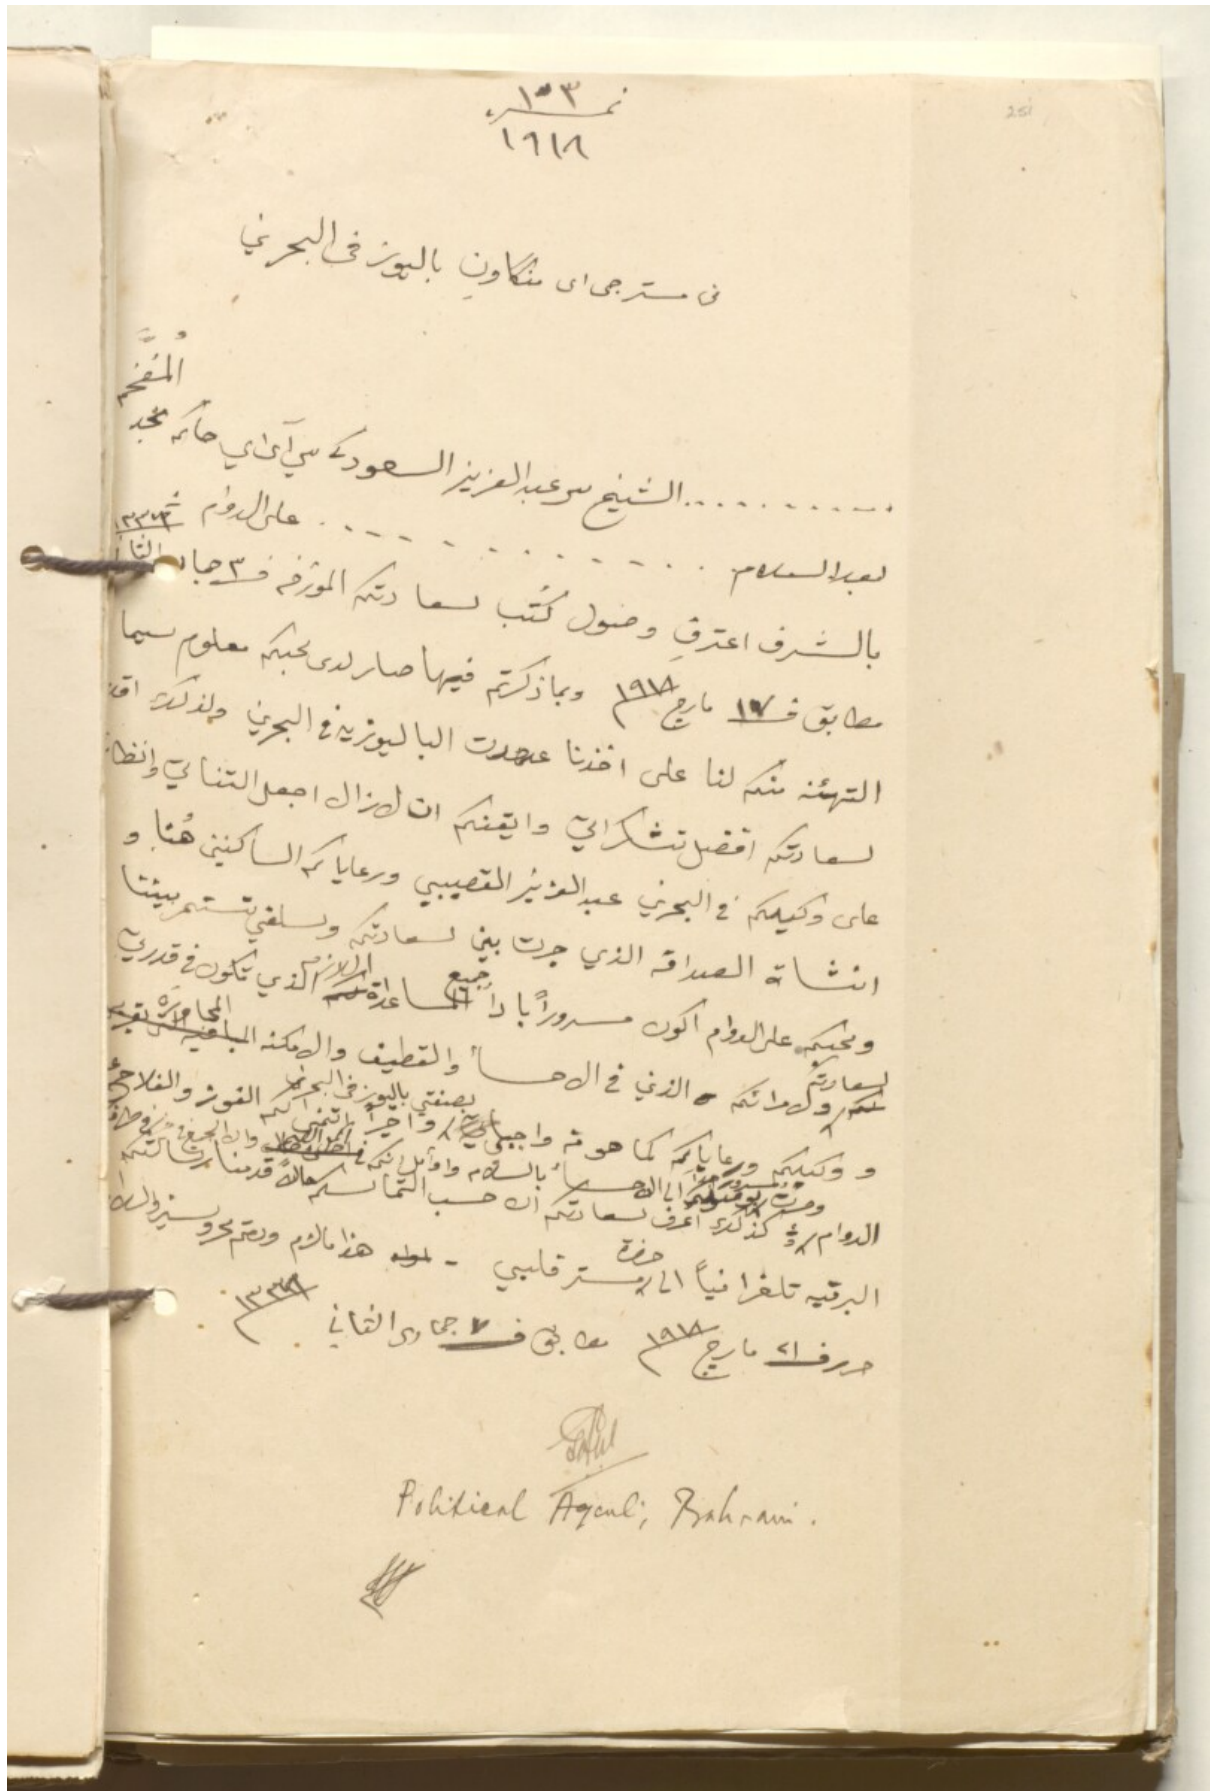 251
نمرة ١٠٣
١٩١٨
من مستر جي اي منكاوين باليوز في البحرين
المُفخَّم
.......... الشيخ سر عبد العزيز السعود كي سي آي اي حاكم نجد
بعد السلام .......... على الدوام
بالشرف اعترف وصول كُتب سعادتكم المؤرخه في ٣ جماد الثاني ١٣٣٦
مطابق في ١٧ مارچ ١٩١٨ وبما ذكرتم فيها صار لدى محبكم معلوم سيما
التهنئه منكم لنا على اخذنا عهدت الباليوزيه في البحرين ولذلك اقدم
لسعادتكم افضل تشكراتي وايقنكم ان لازال اجعل التفاتي وانظاري
على وكيلكم في البحرين عبد العزيز القصيبي ورعاياكم الساكنين هُنا و
انشاة الصداقه الذي جرت بين سعادتكم وسلفي تستمر بيننا
ومحبكم على الدوام اكون مسروراً باداء جميع المساعدات اللازم الذي تكون في قدرتي
لسعادتكم ولامرائكم الذين في الاحساء والقطيف والامكنه المجاوره
ووكيلكم ورعاياكم كما هو من واجباتي بصفتي باليوز في البحرين واخيراً اتمنى لكم الفوز والفلاح
الدوام كذلك اعرف سعادتكم ان حسب التماسكم حالاً قدمنا رسالتكم
البرقيه تلغرافياً الى حضرة مستر فلبي - هذا ما لزم ودمتم محروسين والسلام
حرر في ٢١ مارچ ١٩١٨ مطابق في ٧ جمادى الثاني ١٣٣٦
Political Agent, Bahrain.